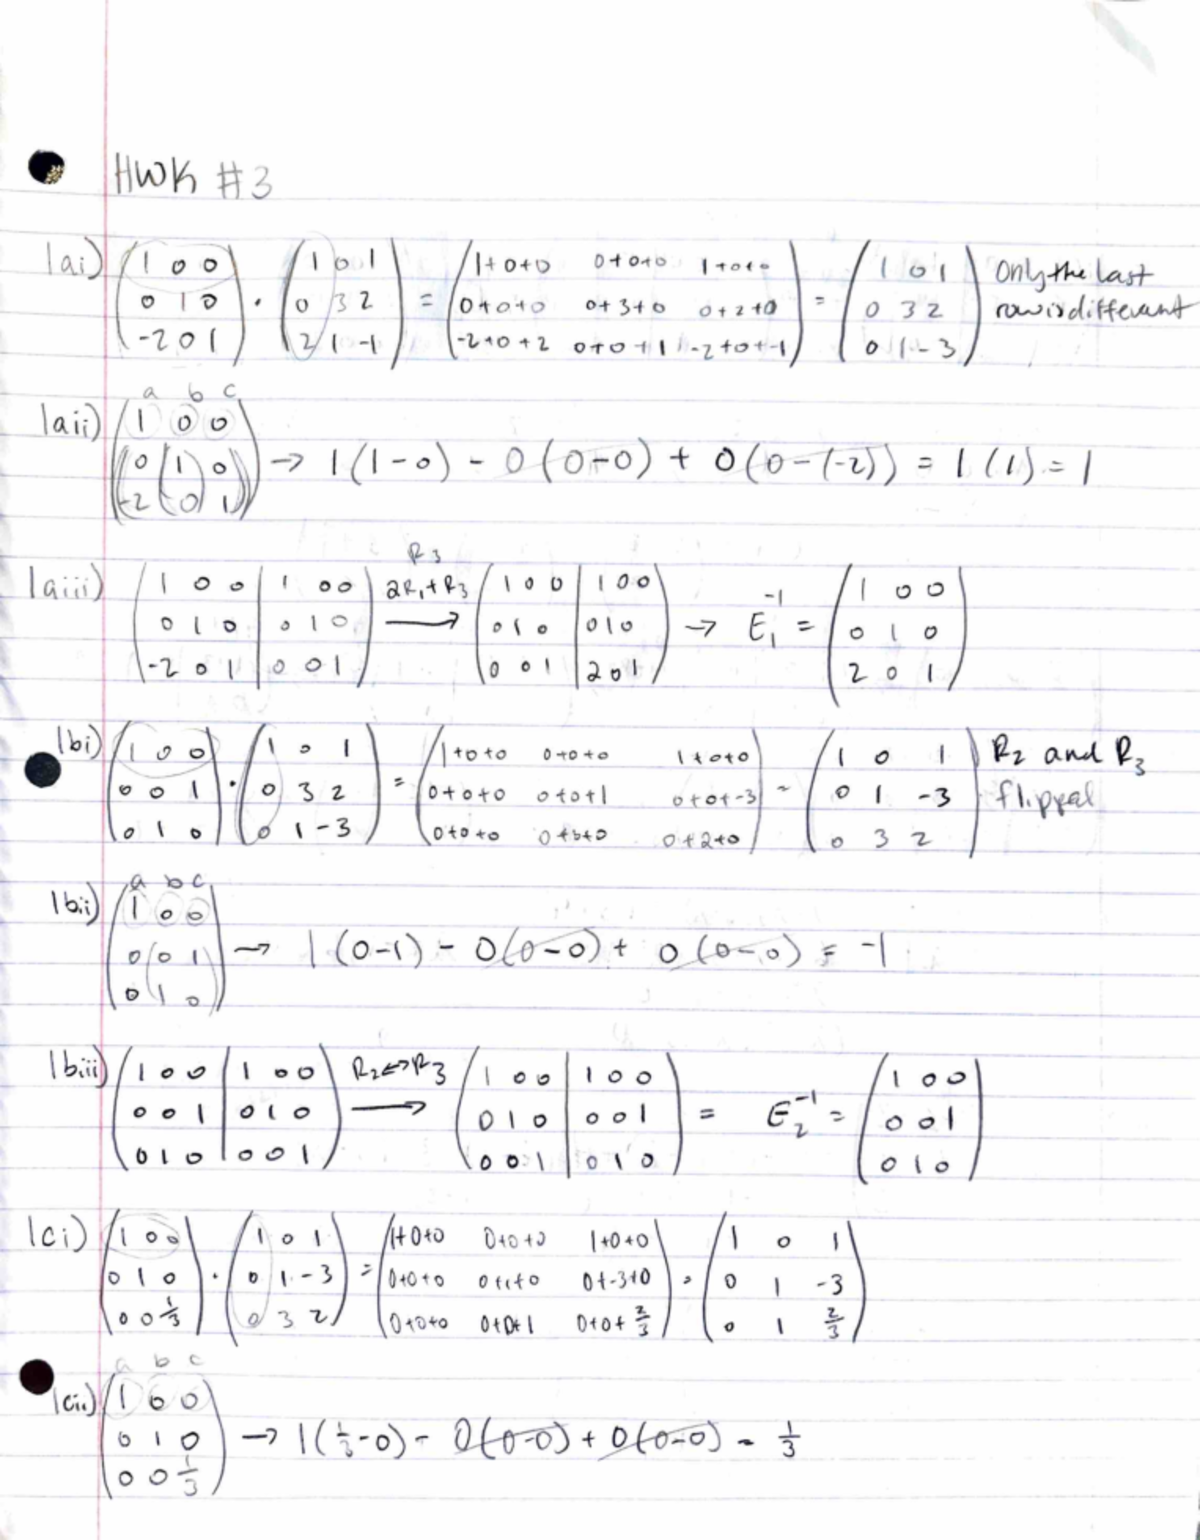 HWK #3
1ai) (1 0 0 / 0 1 0 / -2 0 1) · (1 0 1 / 0 3 2 / 2 1 -1) = (1+0+0 0+0+0 1+0+0 / 0+0+0 0+3+0 0+2+0 / -2+0+2 0+0+1 -2+0+-1) = (1 0 1 / 0 3 2 / 0 1 -3) Only the last row is different
a b c
1aii) (1 0 0 / 0 1 0 / -2 0 1) → 1(1-0) - 0(0-0) + 0(0-(-2)) = 1(1) = 1
R3
1aiii) (1 0 0 | 1 0 0 / 0 1 0 | 0 1 0 / -2 0 1 | 0 0 1) 2R1+R3 → (1 0 0 | 1 0 0 / 0 1 0 | 0 1 0 / 0 0 1 | 2 0 1) → E1^-1 = (1 0 0 / 0 1 0 / 2 0 1)
1bi) (1 0 0 / 0 0 1 / 0 1 0) · (1 0 1 / 0 3 2 / 0 1 -3) = (1+0+0 0+0+0 1+0+0 / 0+0+0 0+0+1 0+0+-3 / 0+0+0 0+b+0 0+2+0) = (1 0 1 / 0 1 -3 / 0 3 2) R2 and R3 flipped
a b c
1bii) (1 0 0 / 0 0 1 / 0 1 0) → 1(0-1) - 0(0-0) + 0(0-0) = -1
1biii) (1 0 0 | 1 0 0 / 0 0 1 | 0 1 0 / 0 1 0 | 0 0 1) R2↔R3 → (1 0 0 | 1 0 0 / 0 1 0 | 0 0 1 / 0 0 1 | 0 1 0) = E2^-1 = (1 0 0 / 0 0 1 / 0 1 0)
1ci) (1 0 0 / 0 1 0 / 0 0 1/3) · (1 0 1 / 0 1 -3 / 0 3 2) = (1+0+0 0+0+0 1+0+0 / 0+0+0 0+1+0 0+-3+0 / 0+0+0 0+0+1 0+0+2/3) = (1 0 1 / 0 1 -3 / 0 1 2/3)
a b c
1cii) (1 0 0 / 0 1 0 / 0 0 1/3) → 1(1/3-0) - 0(0-0) + 0(0-0) = 1/3